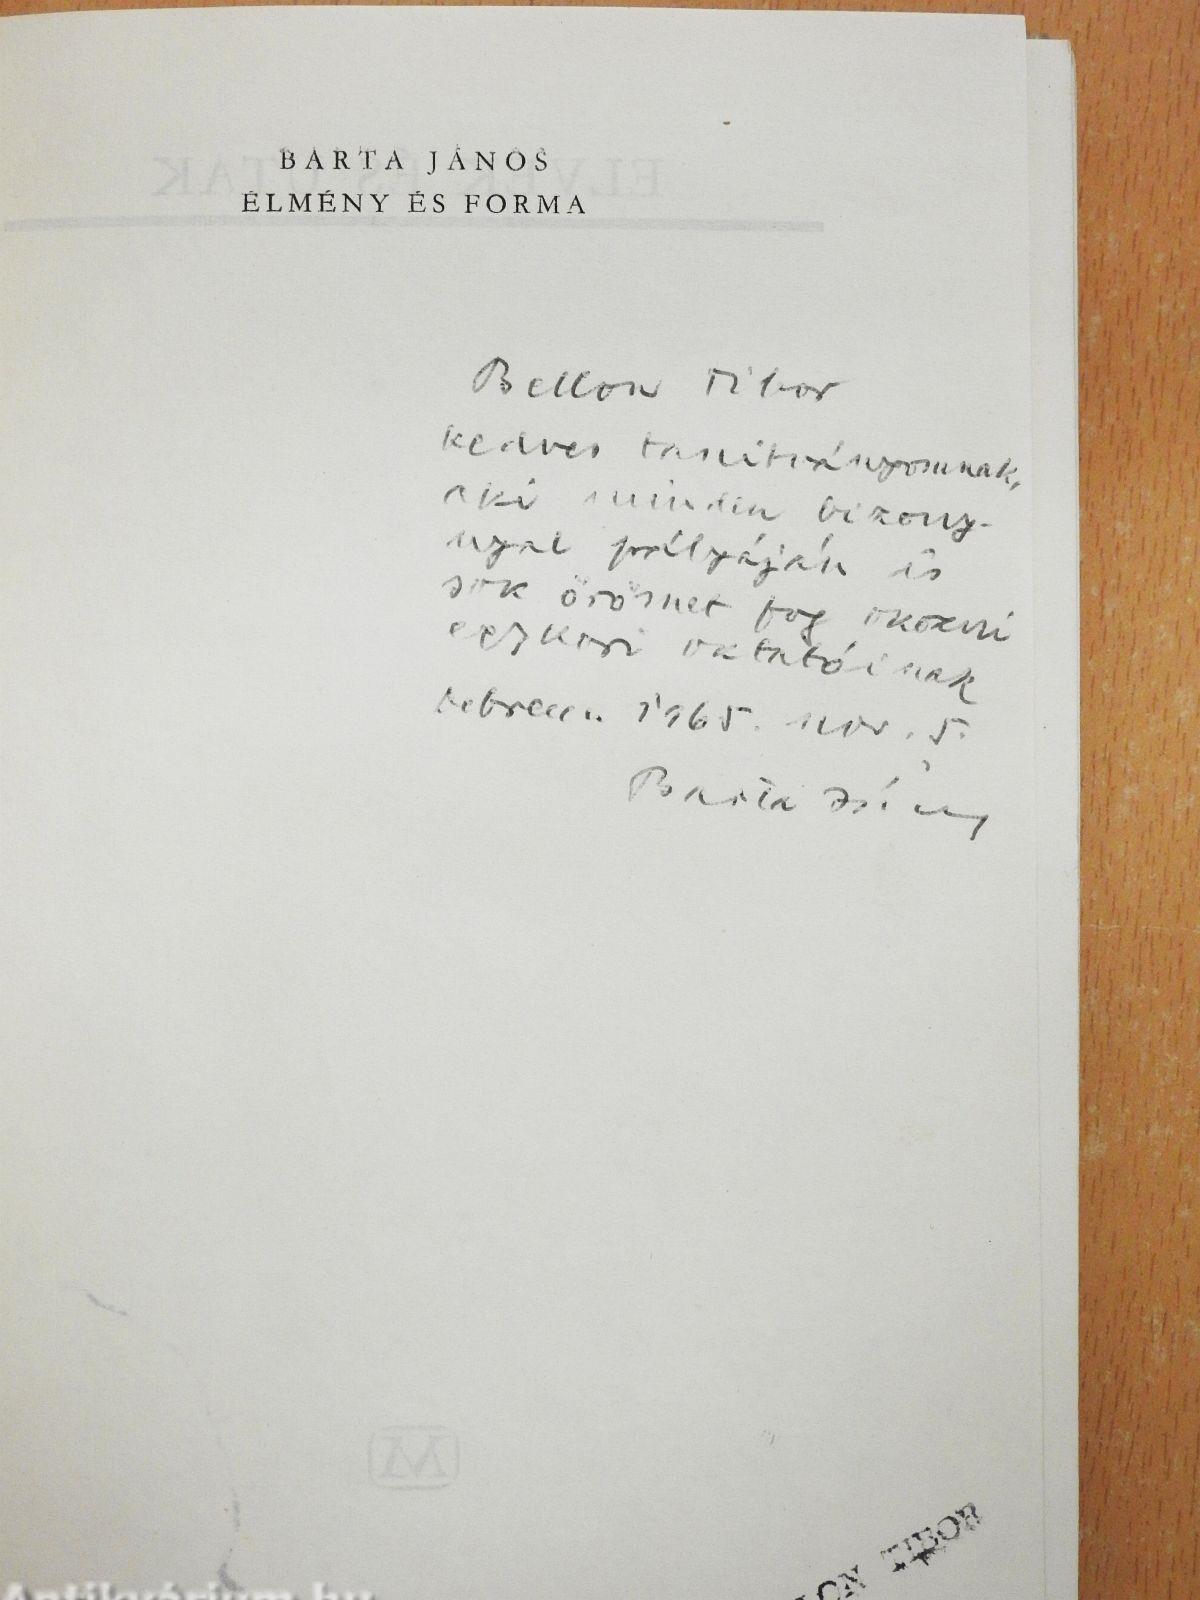 BARTA JÁNOS
ÉLMÉNY ÉS FORMA
Bellon Tibor
kedves tanítványomnak,
aki minden bizony-
nyal pályáján is
sok örömet fog okozni
egykori oktatóinak
Debrecen. 1965. nov. 5.
Barta János
LON TIBOR
Antikvárium.hu